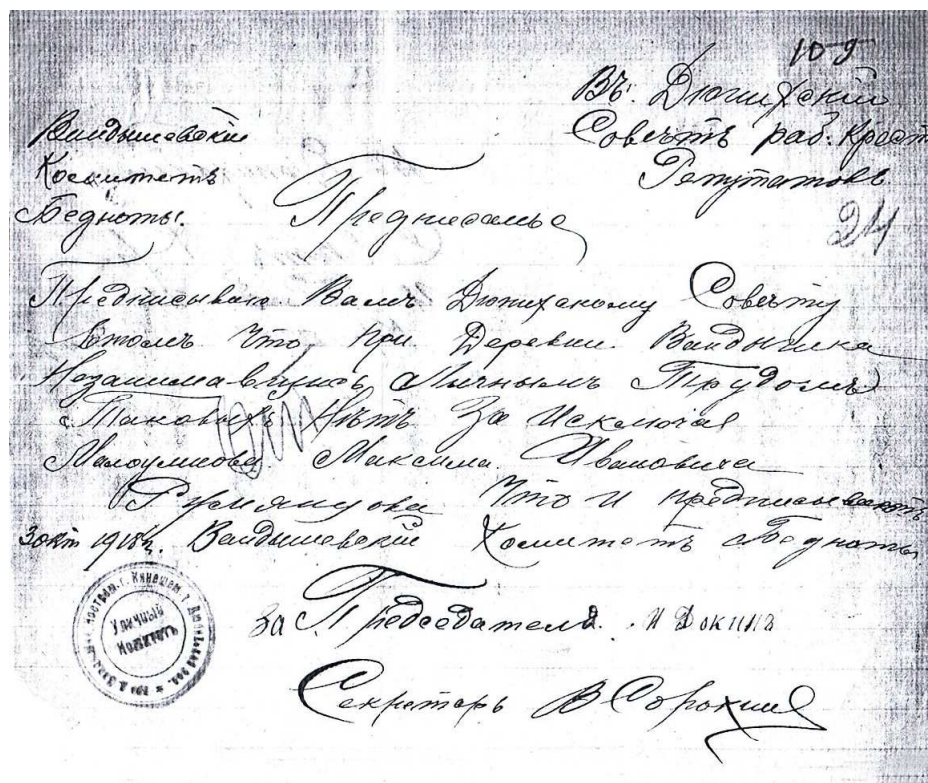 109
Въ. Дюпихскій
Совѣтъ раб. Крест
Депутатовъ
24
Вандышевскій
Комитетъ
Бедноты.
Предписанье
Предписываю Вамъ Дюпихскому Совѣту
вьтомъ Что при Деревни Вандышка
Незанимавшихсь Личнымъ Трудомъ
Таковыхъ Нѣтъ За Исключая
Малоумнова Максима Ивановича
Румянцова Что И предписываетъ
3 окт 1918 г. Вандышевскій Комитетъ Бедноты
За Председателя И Докинъ
Секретарь В Сорокинъ
Кинешем. у.